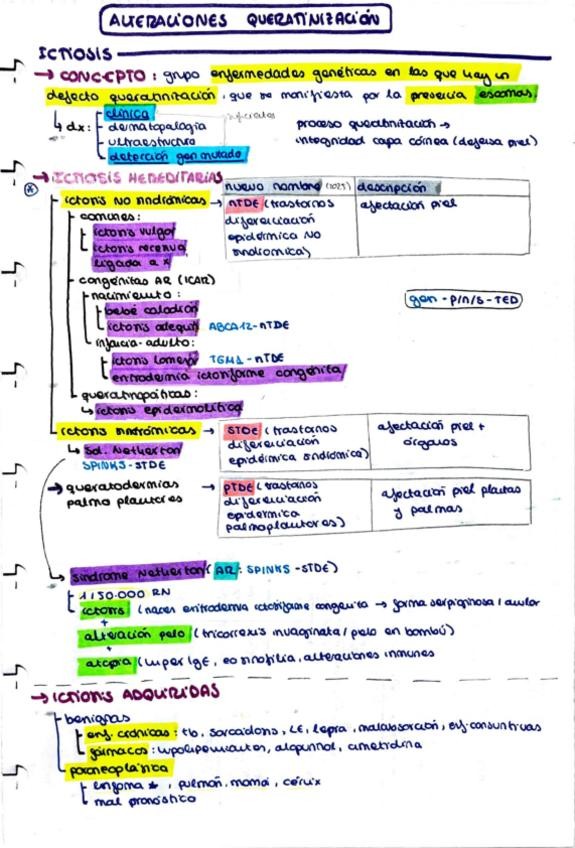 ALTERACIONES QUERATINIZACIÓN
ICTIOSIS
→ CONCEPTO: grupo enfermedades genéticas en las que hay un
defecto queratinización, que se manifiesta por la presencia escamas.
↳ dx:
clínica
dermatopatología
ultraestructura
detección gen mutado
proceso queratinización →
integridad capa córnea (defensa piel)
→ ICTIOSIS HEREDITARIAS
nuevo nombre (2025) descripción
ictiosis NO sindrómicas → nTDE (trastornos
diferenciación
epidérmica NO
sindrómica)
afectación piel
comunes:
ictiosis vulgar
ictiosis recesiva
ligada a X
congénitas AR (ICAR)
nacimiento:
bebé colodión
ictiosis arlequín ABCA12-nTDE
infancia-adulto:
ictiosis lamelar TGM1-nTDE
eritrodermia ictiosiforme congénita
gen-P/N/S-TED
queratinopáticas:
↳ ictiosis epidermolítica
ictiosis sindrómicas → STDE (trastornos
diferenciación
epidérmica sindrómica)
afectación piel +
órganos
↳ Sd. Netherton
SPINK5-STDE
→ queratodermias
palmo plantares
→ PTDE (trastornos
diferenciación
epidérmica
palmoplantares)
afectación piel plantas
y palmas
síndrome Netherton (AR: SPINK5-STDE)
1/50.000 RN
ictiosis (nacer eritrodermia ictiosiforme congénita → forma serpiginosa / anular
+
alteración pelo (tricorrexis invaginata / pelo en bambú)
+
atopia (hiper IgE, eosinofilia, alteraciones inmunes
→ ICTIOSIS ADQUIRIDAS
benignas
enf. crónicas: tb, sarcoidosis, LE, lepra, malabsorción, enf. consuntivas
fármacos: hipolipemiantes, alopurinol, cimetidina
paraneoplásica
linfoma *, pulmón, mama, cérvix
mal pronóstico